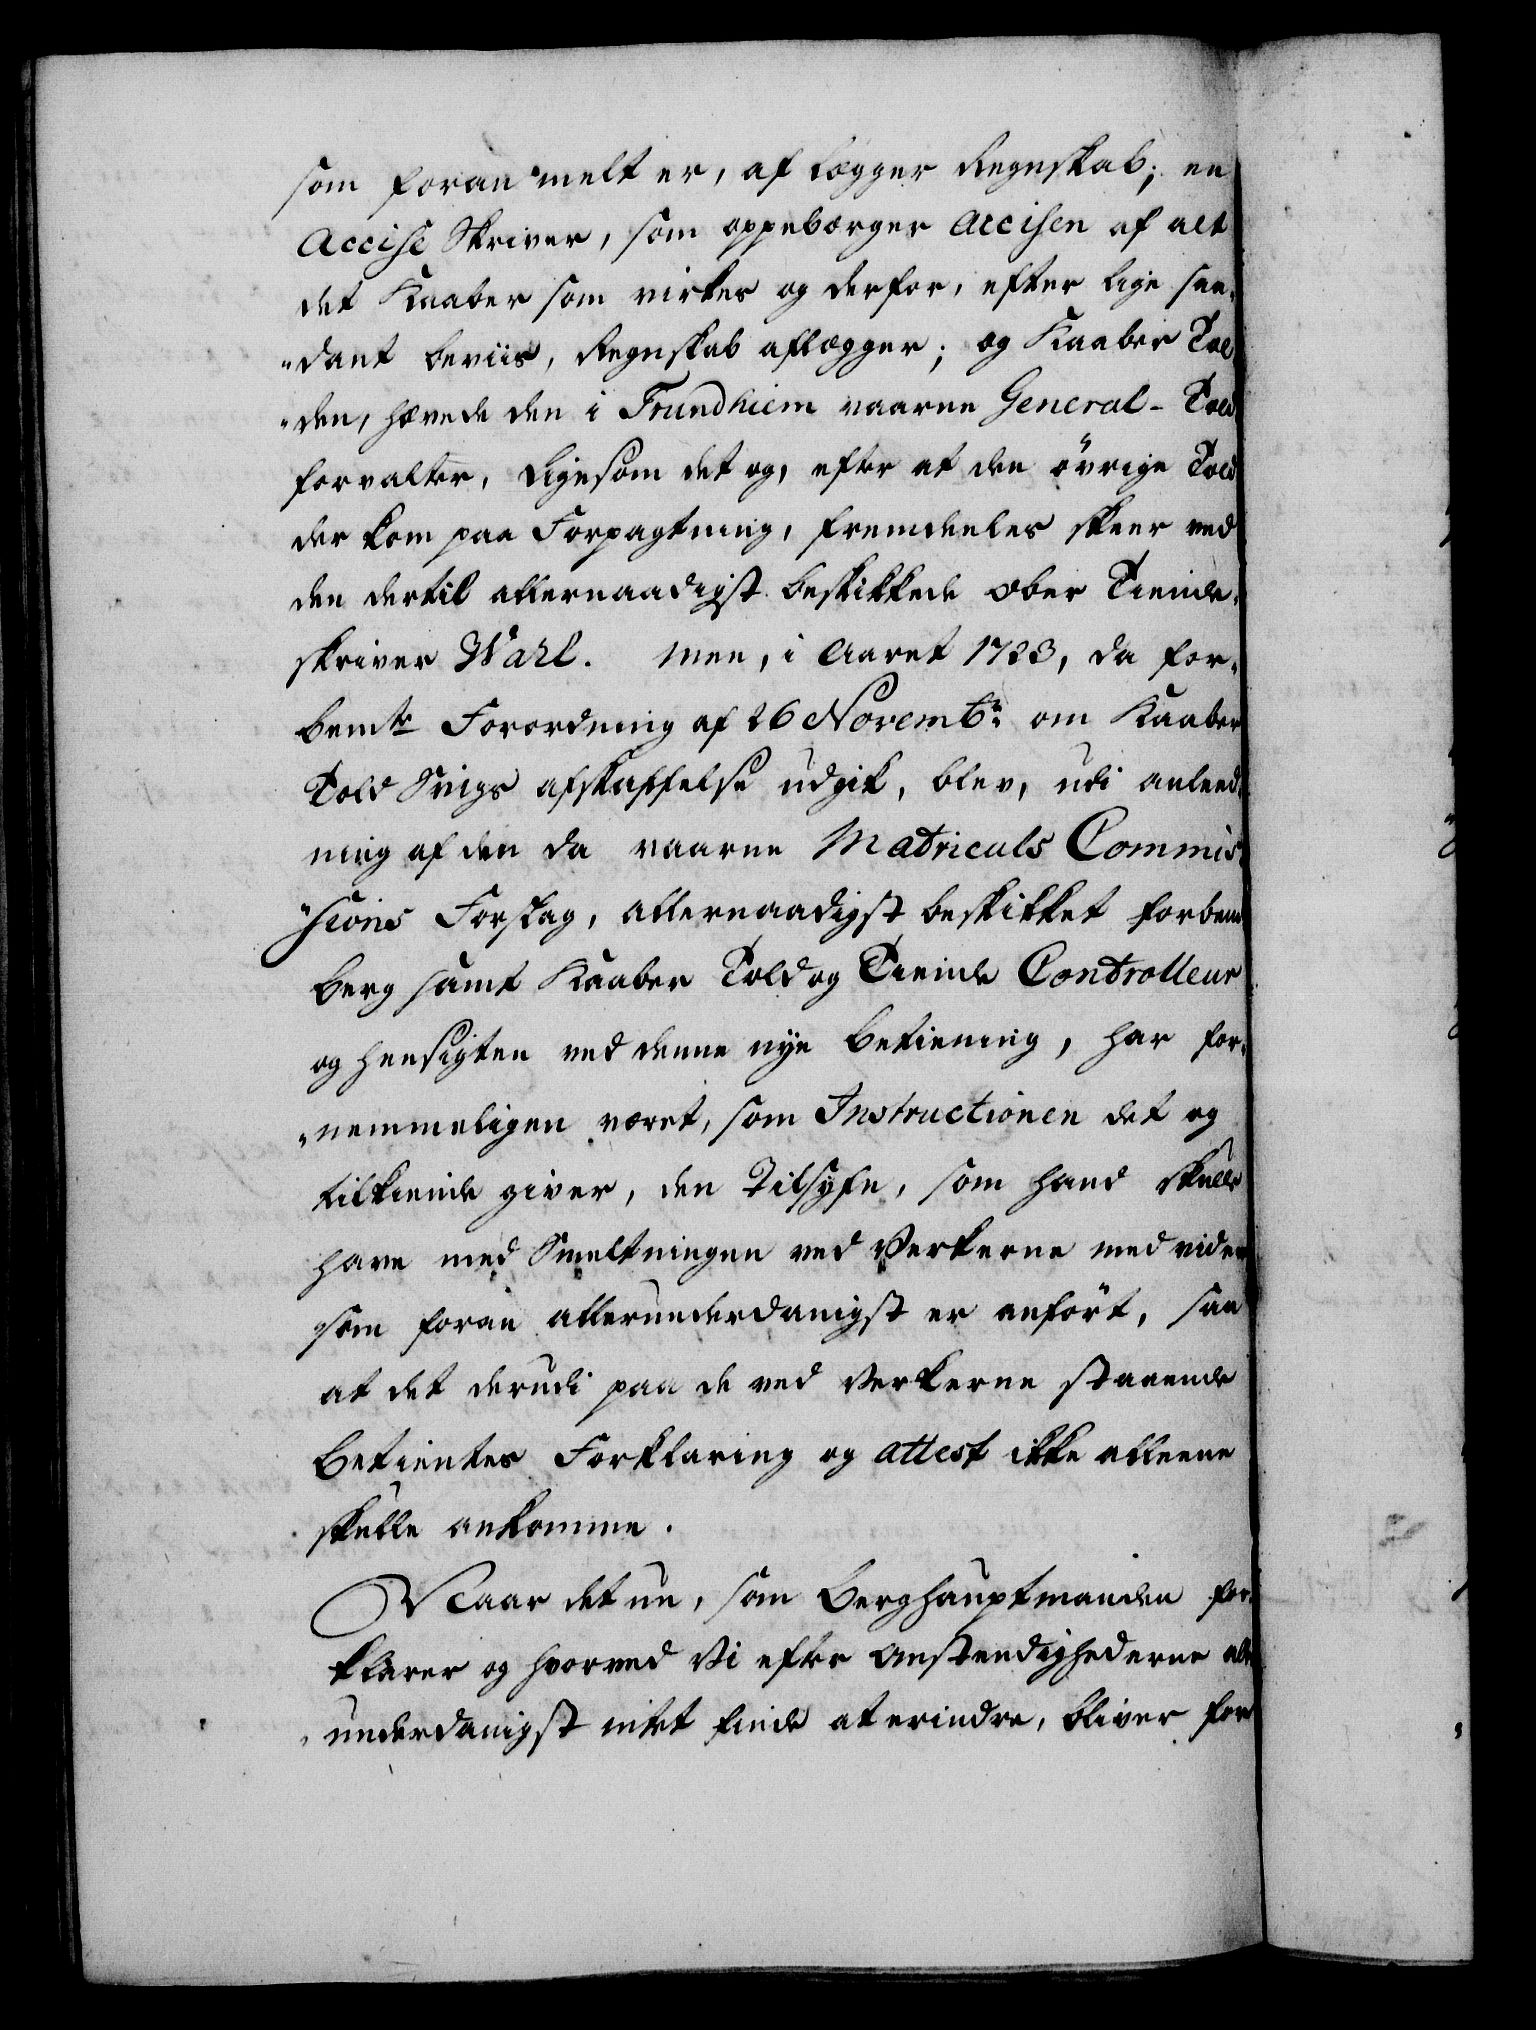 som foran melt er, af lægger Regnskab; en
Accise Skriver, som oppebærger Accisen af alt
det Kaaber som virkes og derfor, efter lige saa„
„dant beviis, Regnskab aflægger; og Kaaber Tol
„den, hævede den i Trundhiem vaarne General-Told
forvalter, Ligesom det og, efter at den övrige Told
der kom paa Forpagtning, fremdeeles skeer ved
den dertil allernaadigst beskikkede Ober Tiende„
skriver Wahl. Men, i Aaret 1723, da for„
bemte Forordning af 26 Novembr om Kaaber
Told Svigs afskaffelse udgik, blev, udi anleed„
ning af den da vaarne Matriculs Commis„
„sions Forslag, allernaadigst beskikket forbem
Berg samt Kaaber Told og Tiende Controlleur
og hensigten ved denne nye betiening, har for„
„nemmeligen været, som Instructionen det og
tilkiende giver, den Tilsyfn, som hand skulle
have med Smeltningen ved Verkerne med viden
som foran allerunderdanigst er anfört, saa
at det derudi paa de ved Verkerne staaende
Betientes Forklaring og attest ikke alleene
skulle ankomme.
Naar det nu, som Berghauptmanden for„
klarer og hvorved Vi efter Omstendighederne aller
underdanigst intet finde at erindre, bliver for